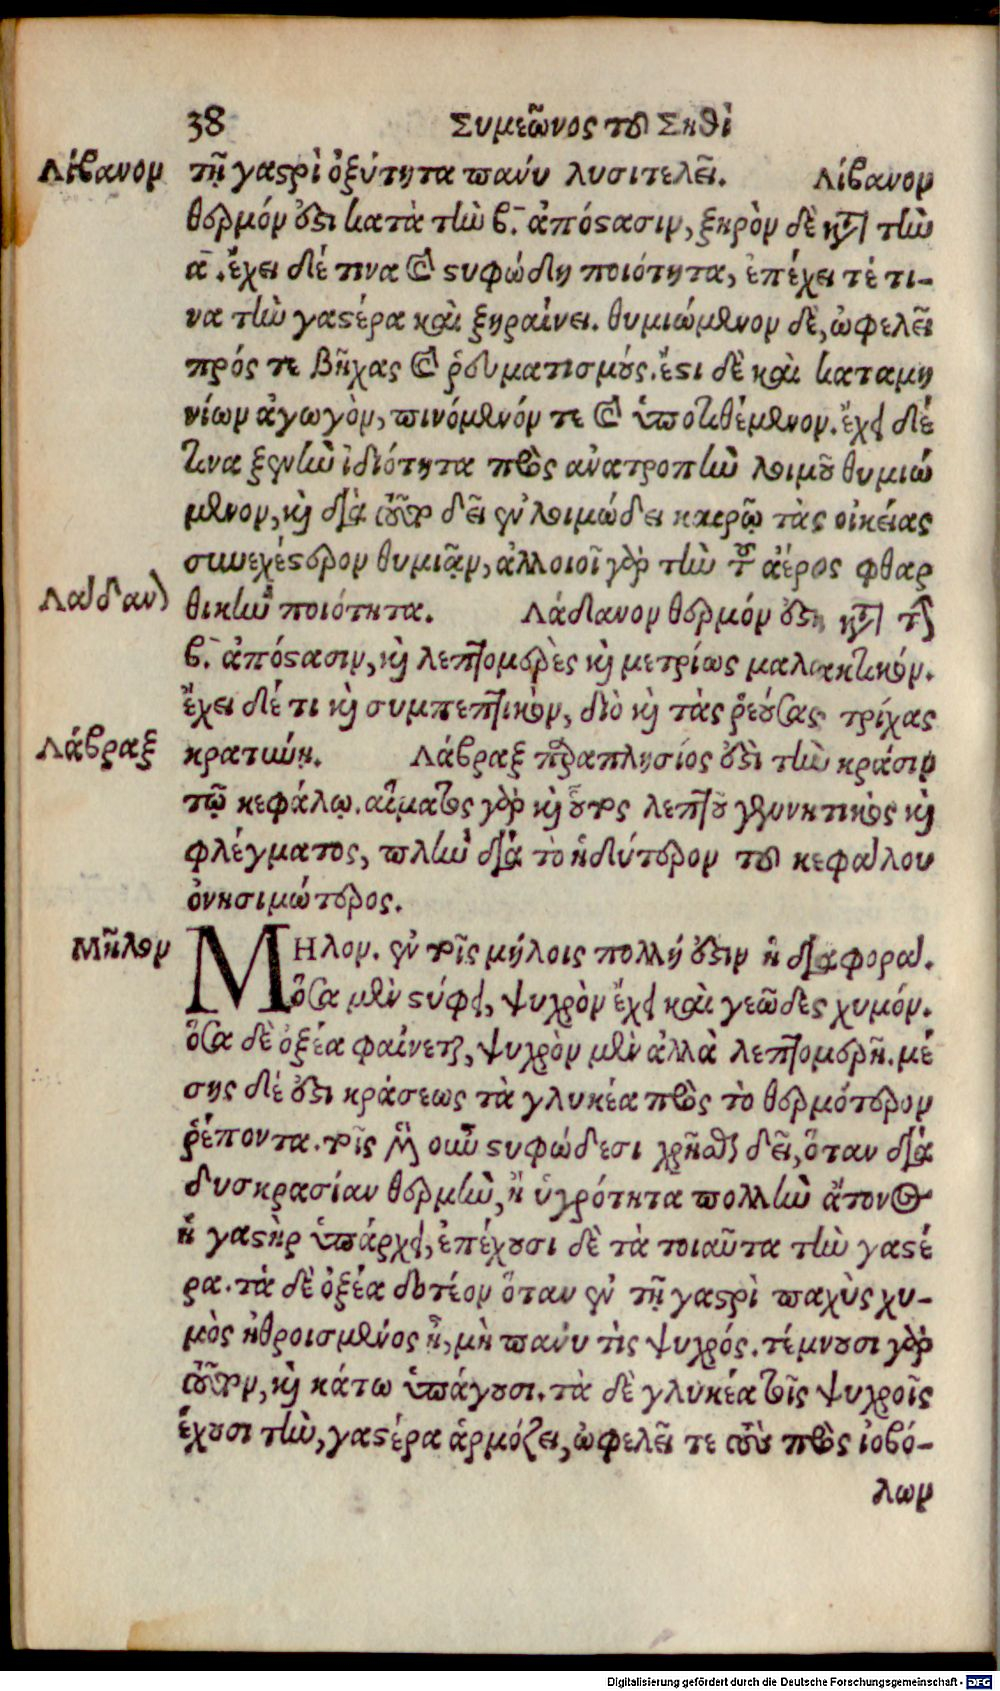 38 Συμεῶνος τοῦ Σηθὶ
Λίβανον τῇ γαστρὶ ὀξύτητα πάνυ λυσιτελεῖ. Λίβανον
θερμόν ἐστι κατὰ τὴν β̄. ἀπόστασιν, ξηρὸν δὲ κατὰ τὴν
ᾱ. ἔχει δέ τινα καὶ στυφώδη ποιότητα, ἐπέχει τέ τι-
να τὴν γαστέρα καὶ ξηραίνει. θυμιώμενον δὲ, ὠφελεῖ
πρός τε βῆχας καὶ ῥευματισμούς. ἔστι δὲ καὶ καταμη
νίων ἀγωγὸν, πινόμενόν τε καὶ ὑποτιθέμενον. ἔχει δέ
τινα ξενὴν ἰδιότητα πρὸς ἀνατροπὴν λοιμοῦ θυμιώ
μενον, καὶ διὰ τοῦτο δεῖ ἐν λοιμώδει καιρῷ τὰς οἰκείας
συνεχέστερον θυμιᾷν, ἀλλοιοῖ γὰρ τὴν τοῦ ἀέρος φθαρ
Λάδαν θικὴν ποιότητα. Λάδανον θερμόν ἐστι κατὰ τὴν
β̄. ἀπόστασιν, καὶ λεπτομερὲς καὶ μετρίως μαλακτικόν.
ἔχει δέ τι καὶ συμπεπτικὸν, διὸ καὶ τὰς ῥεούσας τρίχας
Λάβραξ κρατύνει. Λάβραξ παραπλησίος ἐστὶ τὴν κράσιν
τῷ κεφάλῳ. αἵματος γὰρ καὶ οὗτος λεπτοῦ γεννητικὸς καὶ
φλέγματος, πλὴν διὰ τὸ ἡδύτερον τοῦ κεφάλου
ὀνησιμώτερος.
Μῆλον ΜΗλον. ἐν τοῖς μήλοις πολλή ἐστιν ἡ διαφορά.
ὅσα μὲν στύφει, ψυχρὸν ἔχει καὶ γεῶδες χυμόν.
ὅσα δὲ ὀξέα φαίνεται, ψυχρὸν μὲν ἀλλὰ λεπτομερῆ. μέ
σης δέ ἐστι κράσεως τὰ γλυκέα πρὸς τὸ θερμότερον
ῥέποντα. τοῖς μὲν οὖν στυφώδεσι χρῆσθαι δεῖ, ὅταν διὰ
δυσκρασίαν θερμὴν, ἢ ὑγρότητα πολλὴν ἄτονος
ἡ γαστὴρ ὑπάρχει, ἐπέχουσι δὲ τὰ τοιαῦτα τὴν γαστέ
ρα. τὰ δὲ ὀξέα δοτέον ὅταν ἐν τῇ γαστρὶ παχὺς χυ-
μὸς ἠθροισμένος ᾖ, μὴ πάνυ τὶς ψυχρός. τέμνουσι γὰρ
τοῦτον, καὶ κάτω ὑπάγουσι. τὰ δὲ γλυκέα τοῖς ψυχροῖς
ἔχουσι τὴν, γαστέρα ἁρμόζει, ὠφελεῖ τε τοὺς πρὸς ἰοβό-
λων
Digitalisierung gefördert durch die Deutsche Forschungsgemeinschaft - DFG